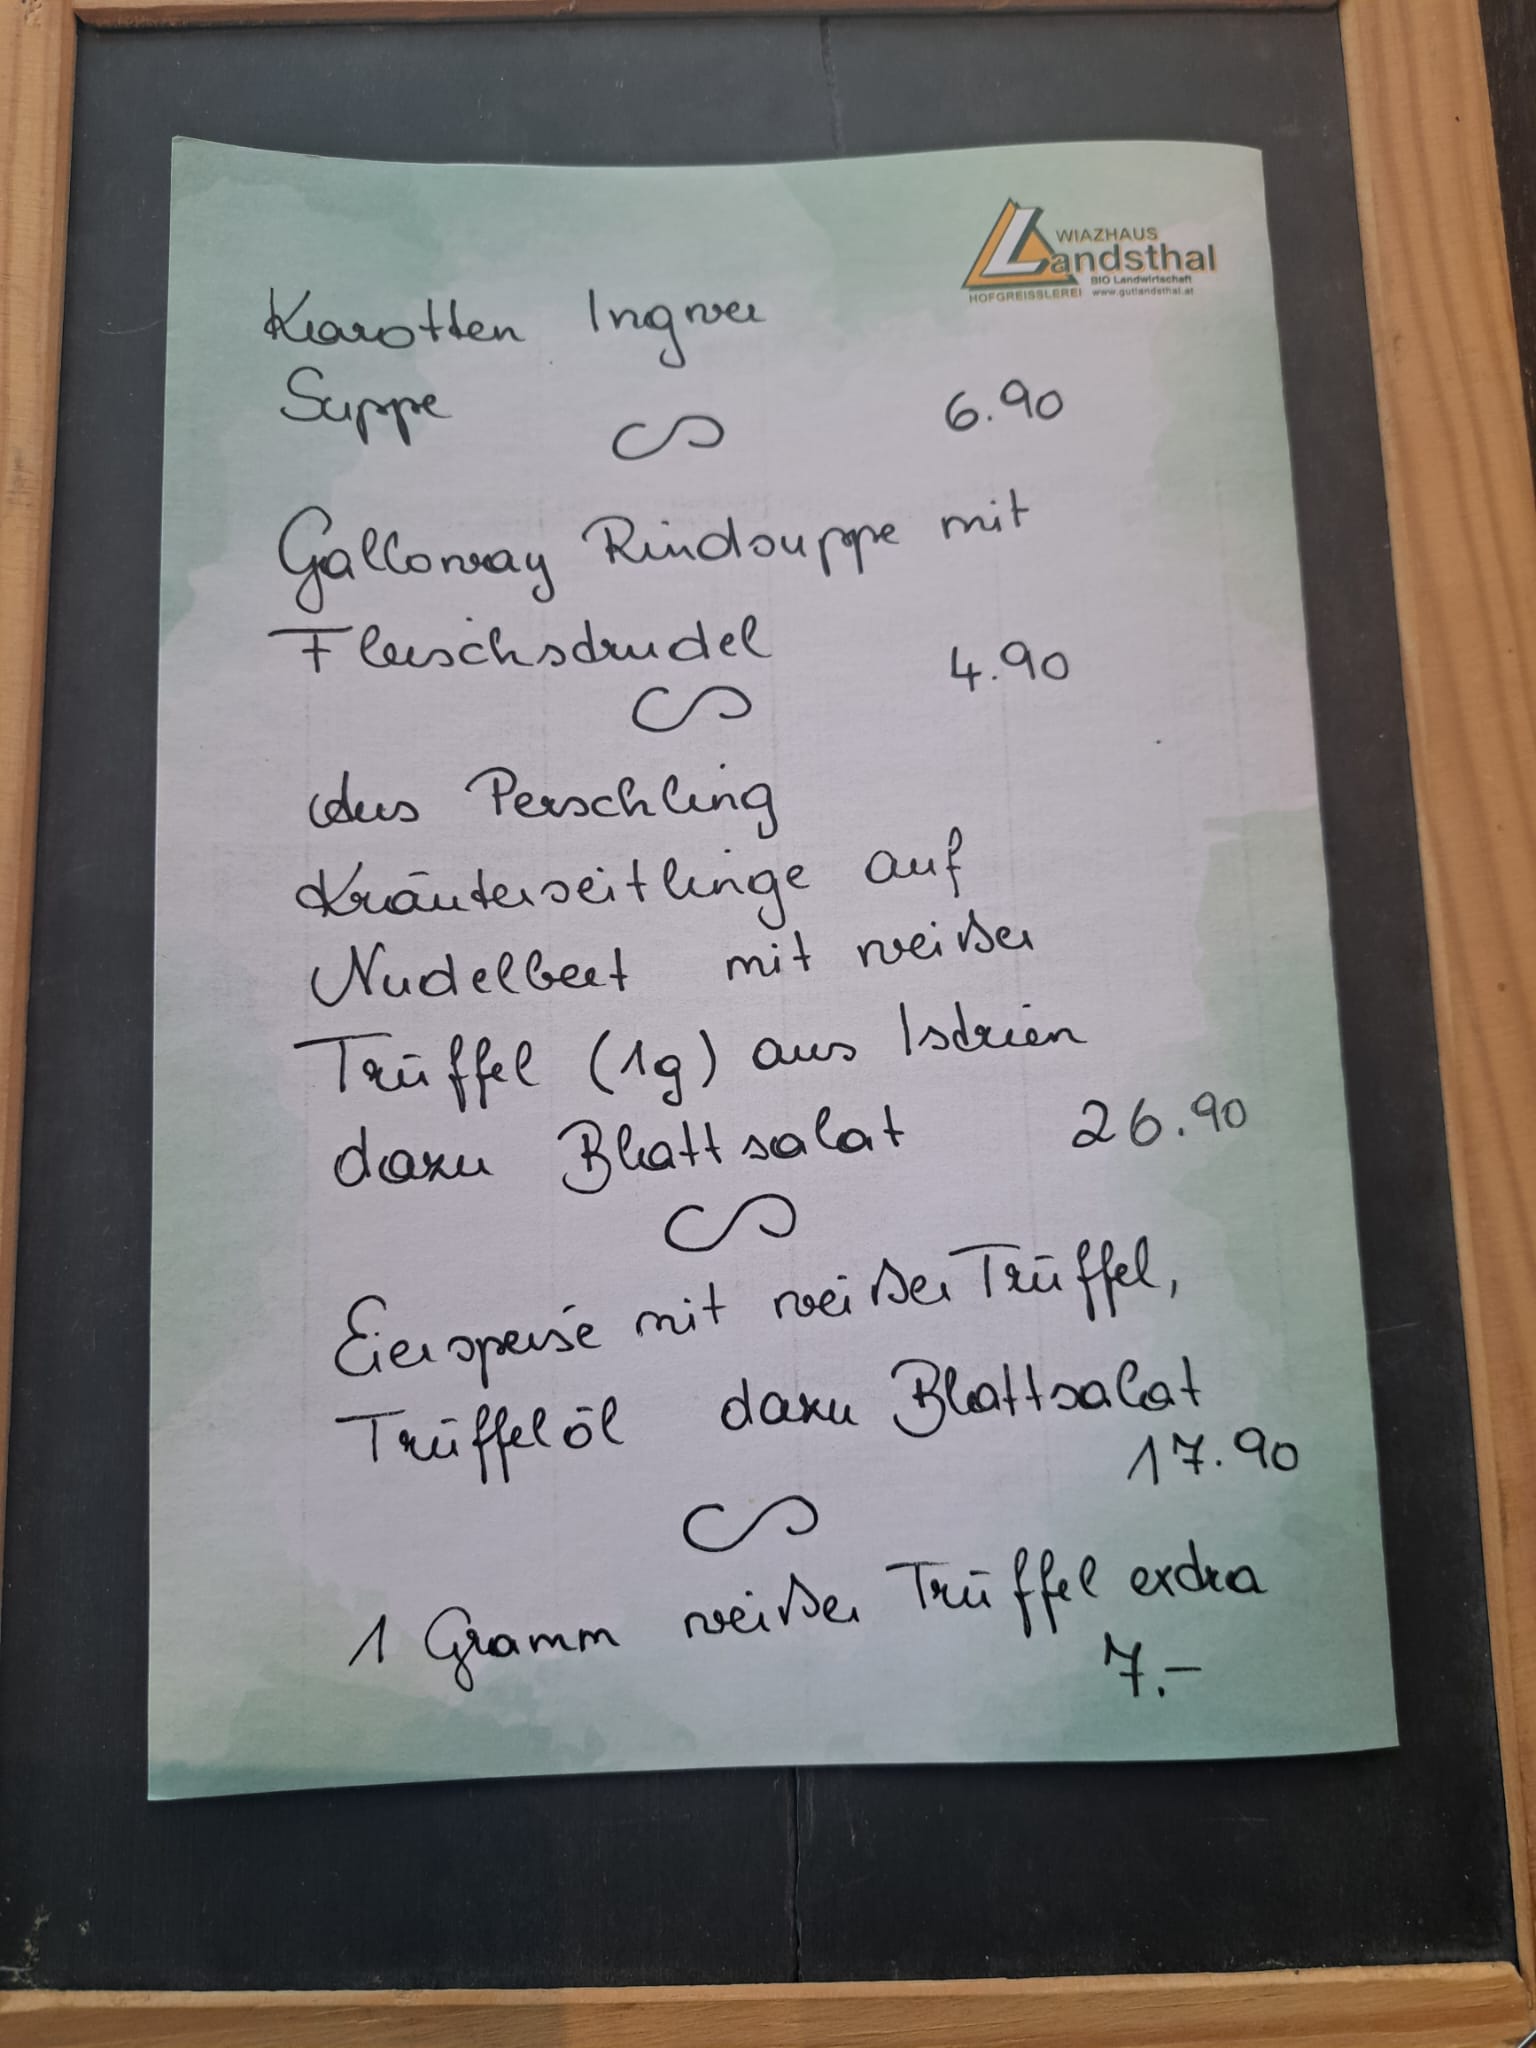 WIAZHAUS
Landsthal
BIO Landwirtschaft
HOFGREISSLEREI www.gutlandsthal.at
Karotten Ingwer
Suppe 6.90
Galloway Rindsuppe mit
Fleischstrudel 4.90
Aus Perschling
Kräuterseitlinge auf
Nudelbeet mit weißer
Trüffel (1g) aus Istrien
dazu Blattsalat 26.90
Eierspeise mit weißer Trüffel,
Trüffelöl dazu Blattsalat
17.90
1 Gramm weißer Trüffel extra
7.-